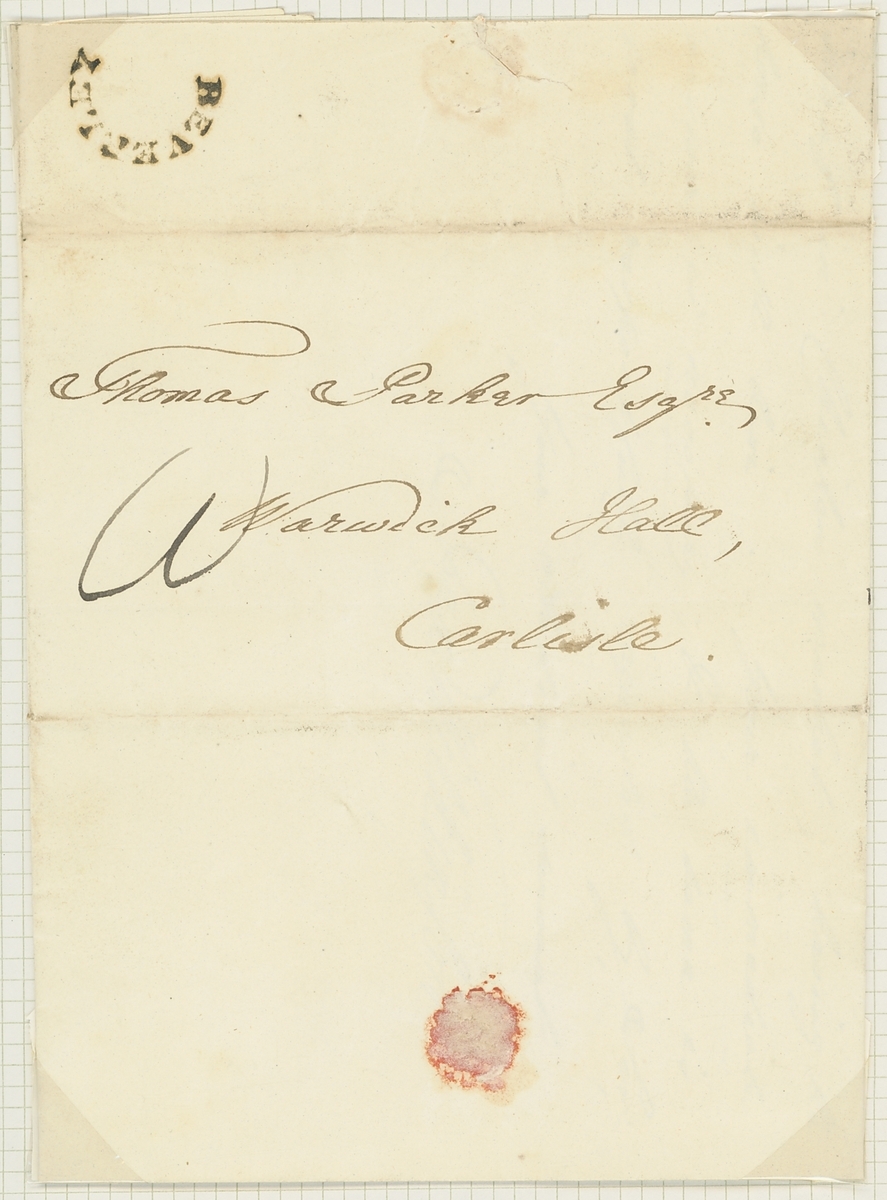 BEVERLEY
Thomas Parker Esqre,
Warwick Hall,
Carlisle.